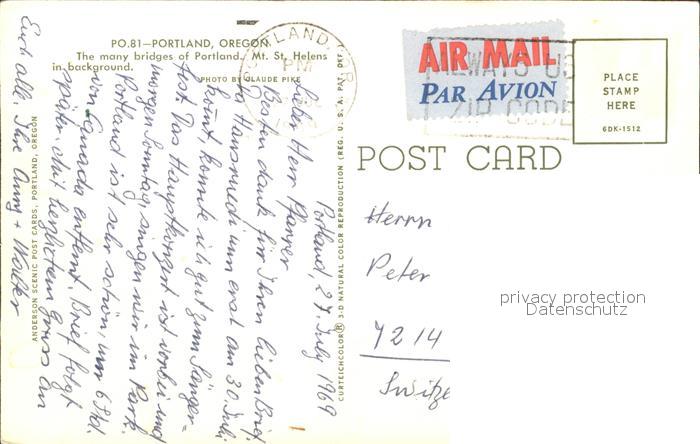 PO.81—PORTLAND, OREGON
The many bridges of Portland. Mt. St. Helens
in background.
PHOTO BY CLAUDE PIKE
PORTLAND, OR
PM
AIR MAIL
PAR AVION
ALWAYS US
ZIP CODE
PLACE
STAMP
HERE
6DK-1512
POST CARD
Portland 27. July 1969
Lieber Herr Pfarrer
Besten dank für Ihren lieben Brief.
Da Hausmedi nun erst am 30. Juli
kommt, konnte ich gut zum Sänger=
fest. Das Hauptkonzert ist vorbei und
morgen Sonntag, singen wir im Park.
Portland ist sehr schön, nur 6 Std.
von Canada entfernt. Brief folgt
später. Mit herzlichem Gruss an
Euch alle. Ihre Anny + Walter
ANDERSON SCENIC POST CARDS, PORTLAND, OREGON
CURTEICHCOLOR® 3-D NATURAL COLOR REPRODUCTION (REG. U.S.A. PAT. OFF.)
Herrn
Peter
7214
Switze
privacy protection
Datenschutz